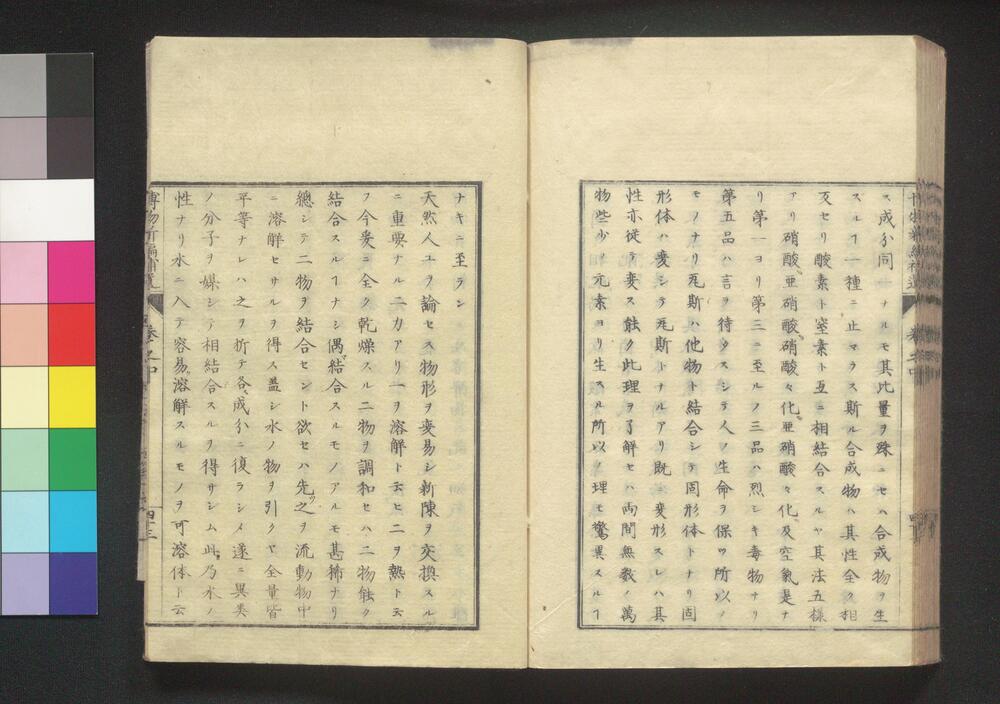 ス成分同一ナルモ其比量ヲ殊ニセハ合成物ヲ生
スルヿ一種ニ止マラス斯ル合成物ハ其性全ク相
反セリ酸素ト窒素ト互ニ相結合スルヤ其法五様
アリ硝酸、亜硝酸、硝酸々化、亜硝酸々化及空氣是ナ
リ第一ヨリ第三ニ至ルノ三品ハ烈シキ毒物ナリ
第五品ハ言ヲ待タスシテ人ノ生命ヲ保ツ所以ノ
モノナリ瓦斯ハ他物ト結合シテ固形体トナリ固
形体ハ変シテ瓦斯トナルアリ既ニ変形スレハ其
性亦従テ変ス能ク此理ヲ了解セハ両間無数ノ萬
物些少ノ元素ヨリ生スル所以ノ理モ驚異スルヿ
ナキニ至ラン
天然人工ヲ論セス物形ヲ変易シ新陳ヲ交換スル
ニ重要ナル二力アリ一ヲ溶解ト云ヒ二ヲ熱ト云
フ今爰ニ全ク乾燥スル二物ヲ調和セハ二物能ク
結合スルヿナシ偶結合スルモノアルモ甚稀ナリ
總シテ二物ヲ結合セント欲セハ先之ヲ流動物中
ニ溶解セサルヲ得ス盖シ水ノ物ヲ引クヤ全量皆
平等ナレハ之ヲ折テ各成分ニ復ラシメ遂ニ異类
ノ分子ヲ媒シテ相結合スルヲ得サシム此乃水ノ
性ナリ水ニ入テ容易溶解スルモノヲ可溶体ト云
博物新編補遺
卷之中
四十三